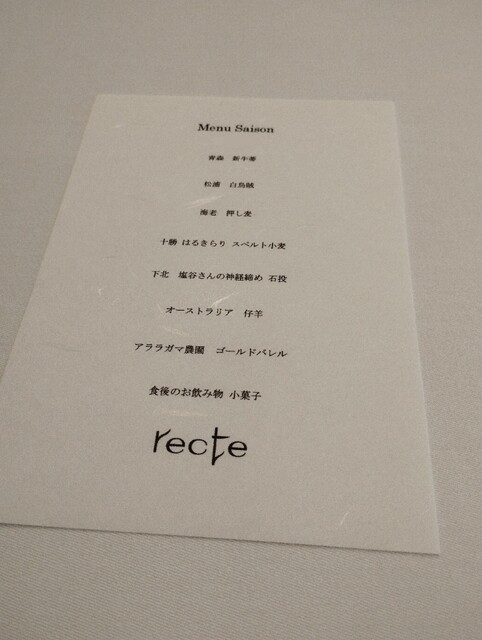 Menu Saison
青森 新牛蒡
松浦 白烏賊
海老 押し麦
十勝 はるきらり スペルト小麦
下北 塩谷さんの神経締め 石投
オーストラリア 仔羊
アララガマ農園 ゴールドバレル
食後のお飲み物 小菓子
recte